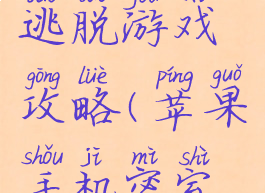 逃脱游戏
gōng lüè píng guǒ
攻略(苹果
shǒu jī mì shì
手机密室